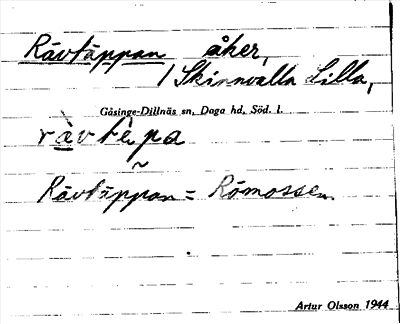 Rävtäppan åker,
/ Skinnvalla Lilla,
Gåsinge-Dillnäs sn, Daga hd, Söd. l.
rävtèpa
~
Rävtäppan = Römossen
Artur Olsson 1944